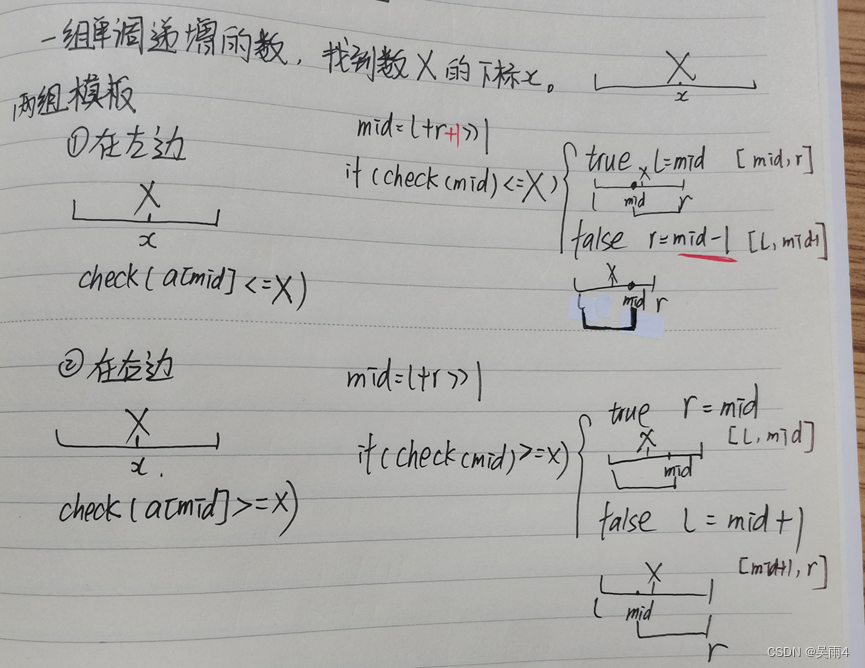 一组单调递增的数，找到数X的下标x。
X
x
两组模板
①在左边
X
x
check(a[mid]<=X)
mid=l+r+1>>1
if(check(mid)<=X)
true l=mid [mid,r]
X
l mid r
false r=mid-1 [l,mid-1]
X
l mid r
②在右边
X
x.
check(a[mid]>=X)
mid=l+r>>1
if(check(mid)>=x)
true r=mid
[l,mid]
X
mid
false l=mid+1
[mid+1,r]
X
l mid
r
CSDN @吴雨4